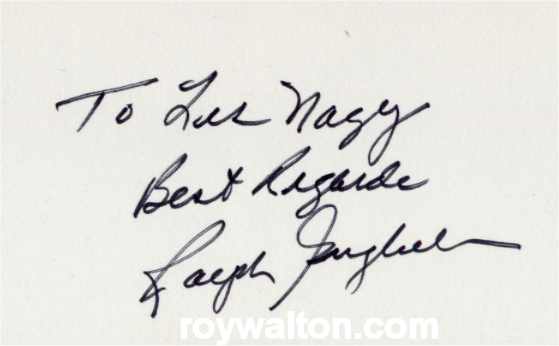 To Les Nagy
Best Regards
Ralph
roywalton.com